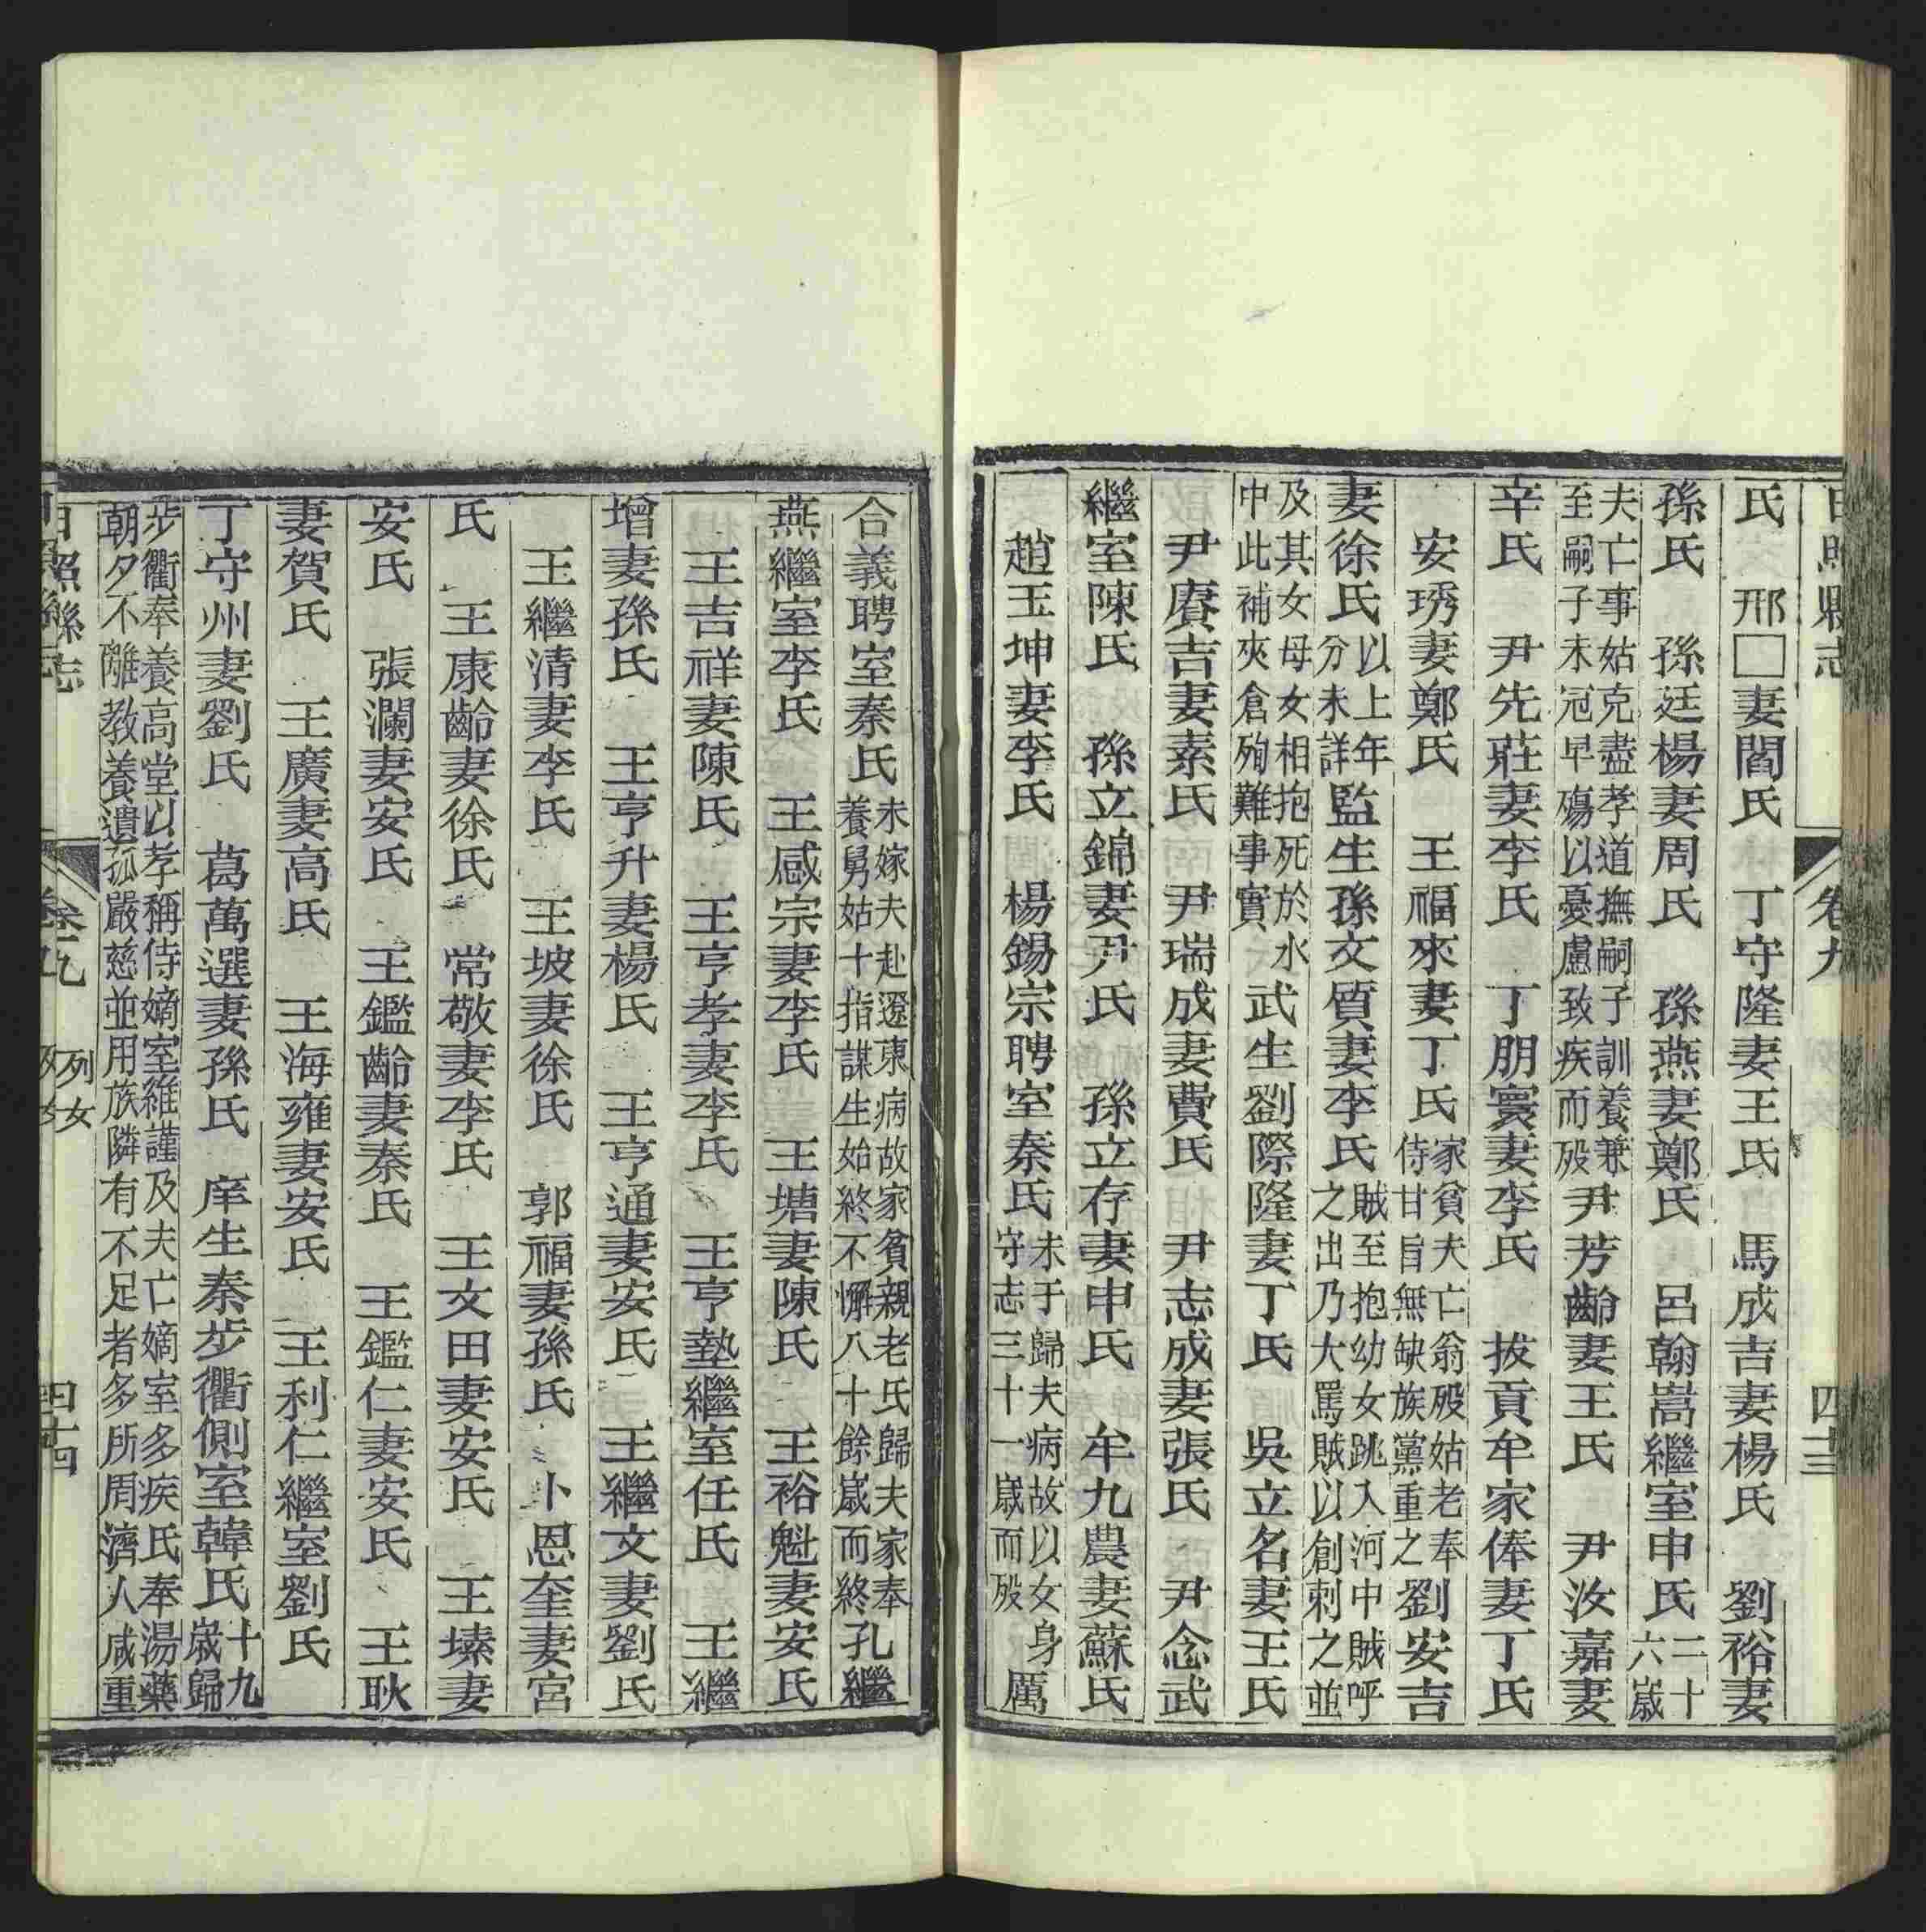 日照縣志 卷九 四十三
氏 邢□妻閻氏 丁守隆妻王氏 馬成吉妻楊氏 劉裕妻
孫氏 孫廷楊妻周氏 孫燕妻鄭氏 呂翰嵩繼室申氏二十六歲
夫亡事姑克盡孝道撫嗣子訓養兼
至嗣子未冠早殤以憂慮致疾而歿
尹芳齡妻王氏 尹汝嘉妻
辛氏 尹先莊妻李氏 丁朋寰妻李氏 拔貢牟家俸妻丁氏
安琇妻鄭氏 王福來妻丁氏
家貧夫亡翁歿姑老奉
侍甘旨無缺族黨重之
劉安吉
妻徐氏
以上年
分未詳
監生孫文質妻李氏
賊至抱幼女跳入河中賊呼
之出乃大罵賊以創刺之並
及其女母女相抱死於水
中此補夾倉殉難事實
武生劉際隆妻丁氏 吳立名妻王氏
尹賡吉妻素氏 尹瑞成妻費氏 尹志成妻張氏 尹念武
繼室陳氏 孫立錦妻尹氏 孫立存妻申氏 牟九農妻蘇氏
趙玉坤妻李氏 楊錫宗聘室秦氏
未于歸夫病故以女身
守志三十一歲而歿
厲
合義聘室秦氏
未嫁夫赴遼東病故家貧親老氏歸夫家奉
養舅姑十指謀生始終不懈八十餘歲而終
孔繼
燕繼室李氏 王慼宗妻李氏 王塘妻陳氏 王裕魁妻安氏
王吉祥妻陳氏 王亨孝妻李氏 王亨塾繼室任氏 王繼
增妻孫氏 王亨升妻楊氏 王亨通妻安氏 王繼文妻劉氏
王繼清妻李氏 王坡妻徐氏 郭福妻孫氏 卜恩奎妻宮
氏 王康齡妻徐氏 常敬妻李氏 王文田妻安氏 王塛妻
安氏 張瀾妻安氏 王鑑齡妻秦氏 王鑑仁妻安氏 王耿
妻賀氏 王廣妻高氏 王海雍妻安氏 王利仁繼室劉氏
丁守州妻劉氏 葛萬選妻孫氏 庠生秦步衢側室韓氏
十九
歲歸
步衢奉養高堂以孝稱侍嫡室維謹及夫亡嫡室多疾氏奉湯藥
朝夕不離教養遺孤嚴慈並用族隣有不足者多所周濟人咸重
日照縣志 卷九 列女 四十四